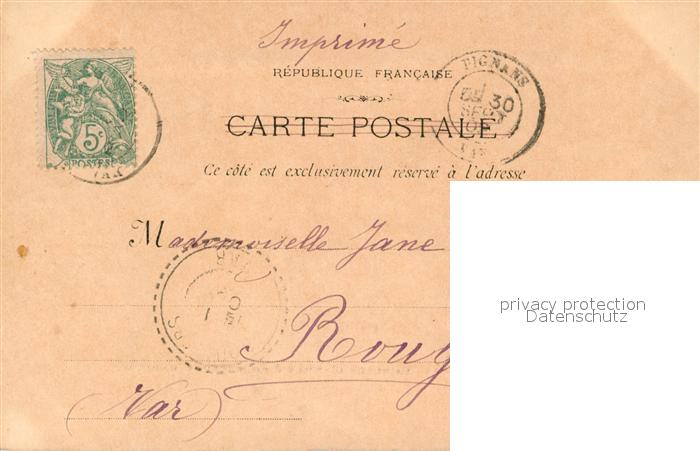 Imprimé
RÉPUBLIQUE FRANÇAISE
PIGNANS
30
5c
POSTES
CARTE POSTALE
Ce côté est exclusivement réservé à l'adresse
Mademoiselle Jane
privacy protection
Datenschutz
Roug
(Var)